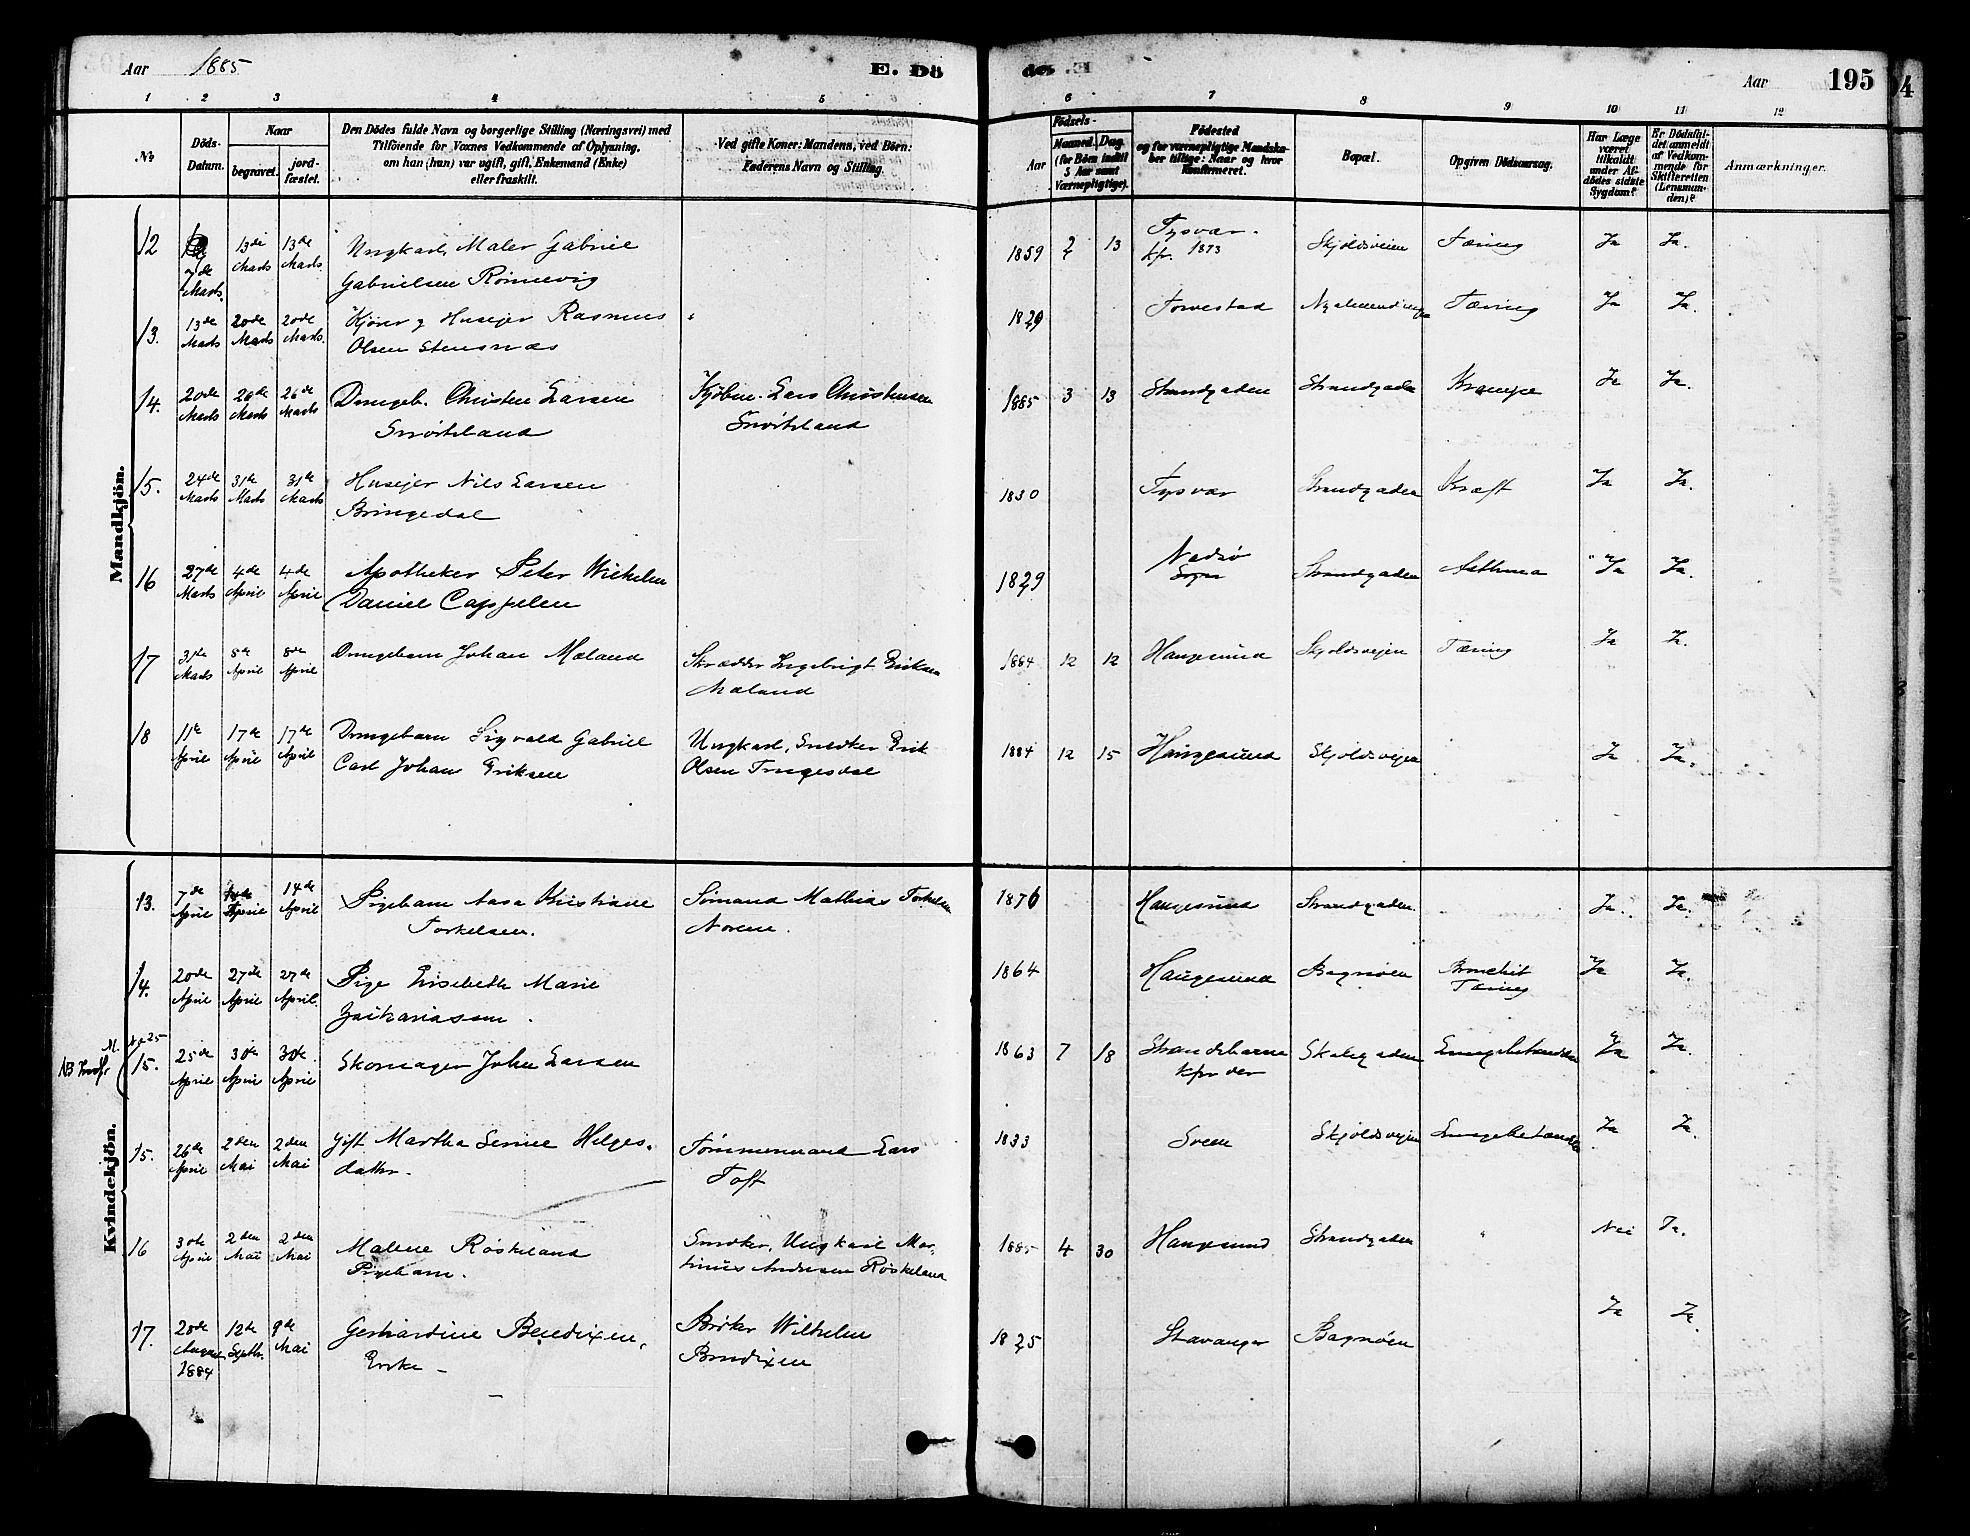 Aar 1885 E. Dö
de. E Aar 195
4
1 2 3 4 5 6 7 8 9 10 11 12
No
Döds-
Datum.
Naar
begravet.
jord-
fæstet.
Den Dödes fulde Navn og borgerlige Stilling (Næringsvei) med
Tilföiende for Voxnes Vedkommende af Oplysning,
om han (hun) var ugift, gift, Enkemand (Enke)
eller fraskilt.
Ved gifte Koner: Mandens, ved Börn:
Faderens Navn og Stilling.
Aar
Födsels-
Maaned. Dag.
(for Börn indtil
5 Aar samt
Værnepligtige).
Födested
og for værnepligtige Mandska-
ber tillige: Naar og hvor
Konfirmeret.
Bopæl.
Opgiven Dödsaarsag.
Har Læge
været
tilkaldt
under Af-
dödes sidste
Sygdom?
Er Dödsfal-
det anmeldt
af Vedkom-
mende for
Skifteretten
(Lensman-
den)?
Anmærkninger.
Mandkjön.
12 7de Marts 13de Marts 13de Marts Ungkarl, Maler Gabriel 1859 2 13 Tysvær. Skjoldsveien Tæring Ja Ja.
Gabrielsen Rønnevig kfr. 1873
13. 13de Marts 20de Marts 20de Marts. Kjører og Husejer Rasmus 1829 Torvestad Tæring Ja Ja.
Olsen Stensnæs
14. 20de Marts 26de Marts 26de Marts Drengeb. Christen Larsen Kjøbm. Lars Christensen 1885 3 13 Strandgaden Strandgaden Krampe Ja Ja.
Smørteland Smørteland
15. 24de Marts 31te Marts 31te Marts Husejer Nils Larsen 1830 Tysvær Strandgaden Kræft Ja Ja.
Bringedal
16 27de Marts 4de April 4de April Apotheker Peter Wilhelm 1829 Vadsø Strandgaden Asthma Ja Ja.
Daniel Cappelen Sogn
17 31te Marts 8de April 8de April Drengebarn Johan Maland Skrædder Ingebrigt Eriksen 1884 12 12 Haugesund Skjoldsvejen Tæring Ja Ja.
Maland
18 11te April 17de April 17de April Drengebarn Sigvald Gabriel Ungkarl, Snedker Erik 1884 12 15 Haugesund Skjoldsvejen Ja Ja.
Carl Johan Eriksen Olsen
Kvindekjön.
13. 7de April 14de April 14de April Pigebarn Aasa Kristiane Sømand Mathias Torkelsen 1876 Haugesund Strandgaden. Ja. Ja.
Torkelsen. Norem.
14. 20de April 27de April 27de April. Pige Elisebeth Marie 1864 Haugesund Bagnøen Bronchit Ja Ja.
Zachariassen. Tæring
NB M. No 25
15. 25de April 30de April 30de April Skomager John Larsen 1863 7 18 Strandebarm Skolegaden Lungebetændelse Ja Ja.
kfr der
15. 26de April 2den Mai 2den Mai Gift Martha Serine Helges- Tømmermand Lars 1833 Sveen Skjoldsvejen Lungebetændelse Ja Ja.
datter. Toft
16 30te April 2den Mai 2den Mai Malene Røskeland Snedker, Ungkarl Mar- 1885 4 30 Haugesund Strandgaden " Nei Ja.
Pigebarn. tinus Andersen Røskeland
17. 28de August 1884 12te Septbr. 9de Mai Gerhardine Bendixen, Wilhelm 1825 Stavanger Bagnøen Ja Ja.
Enke - Bendixen